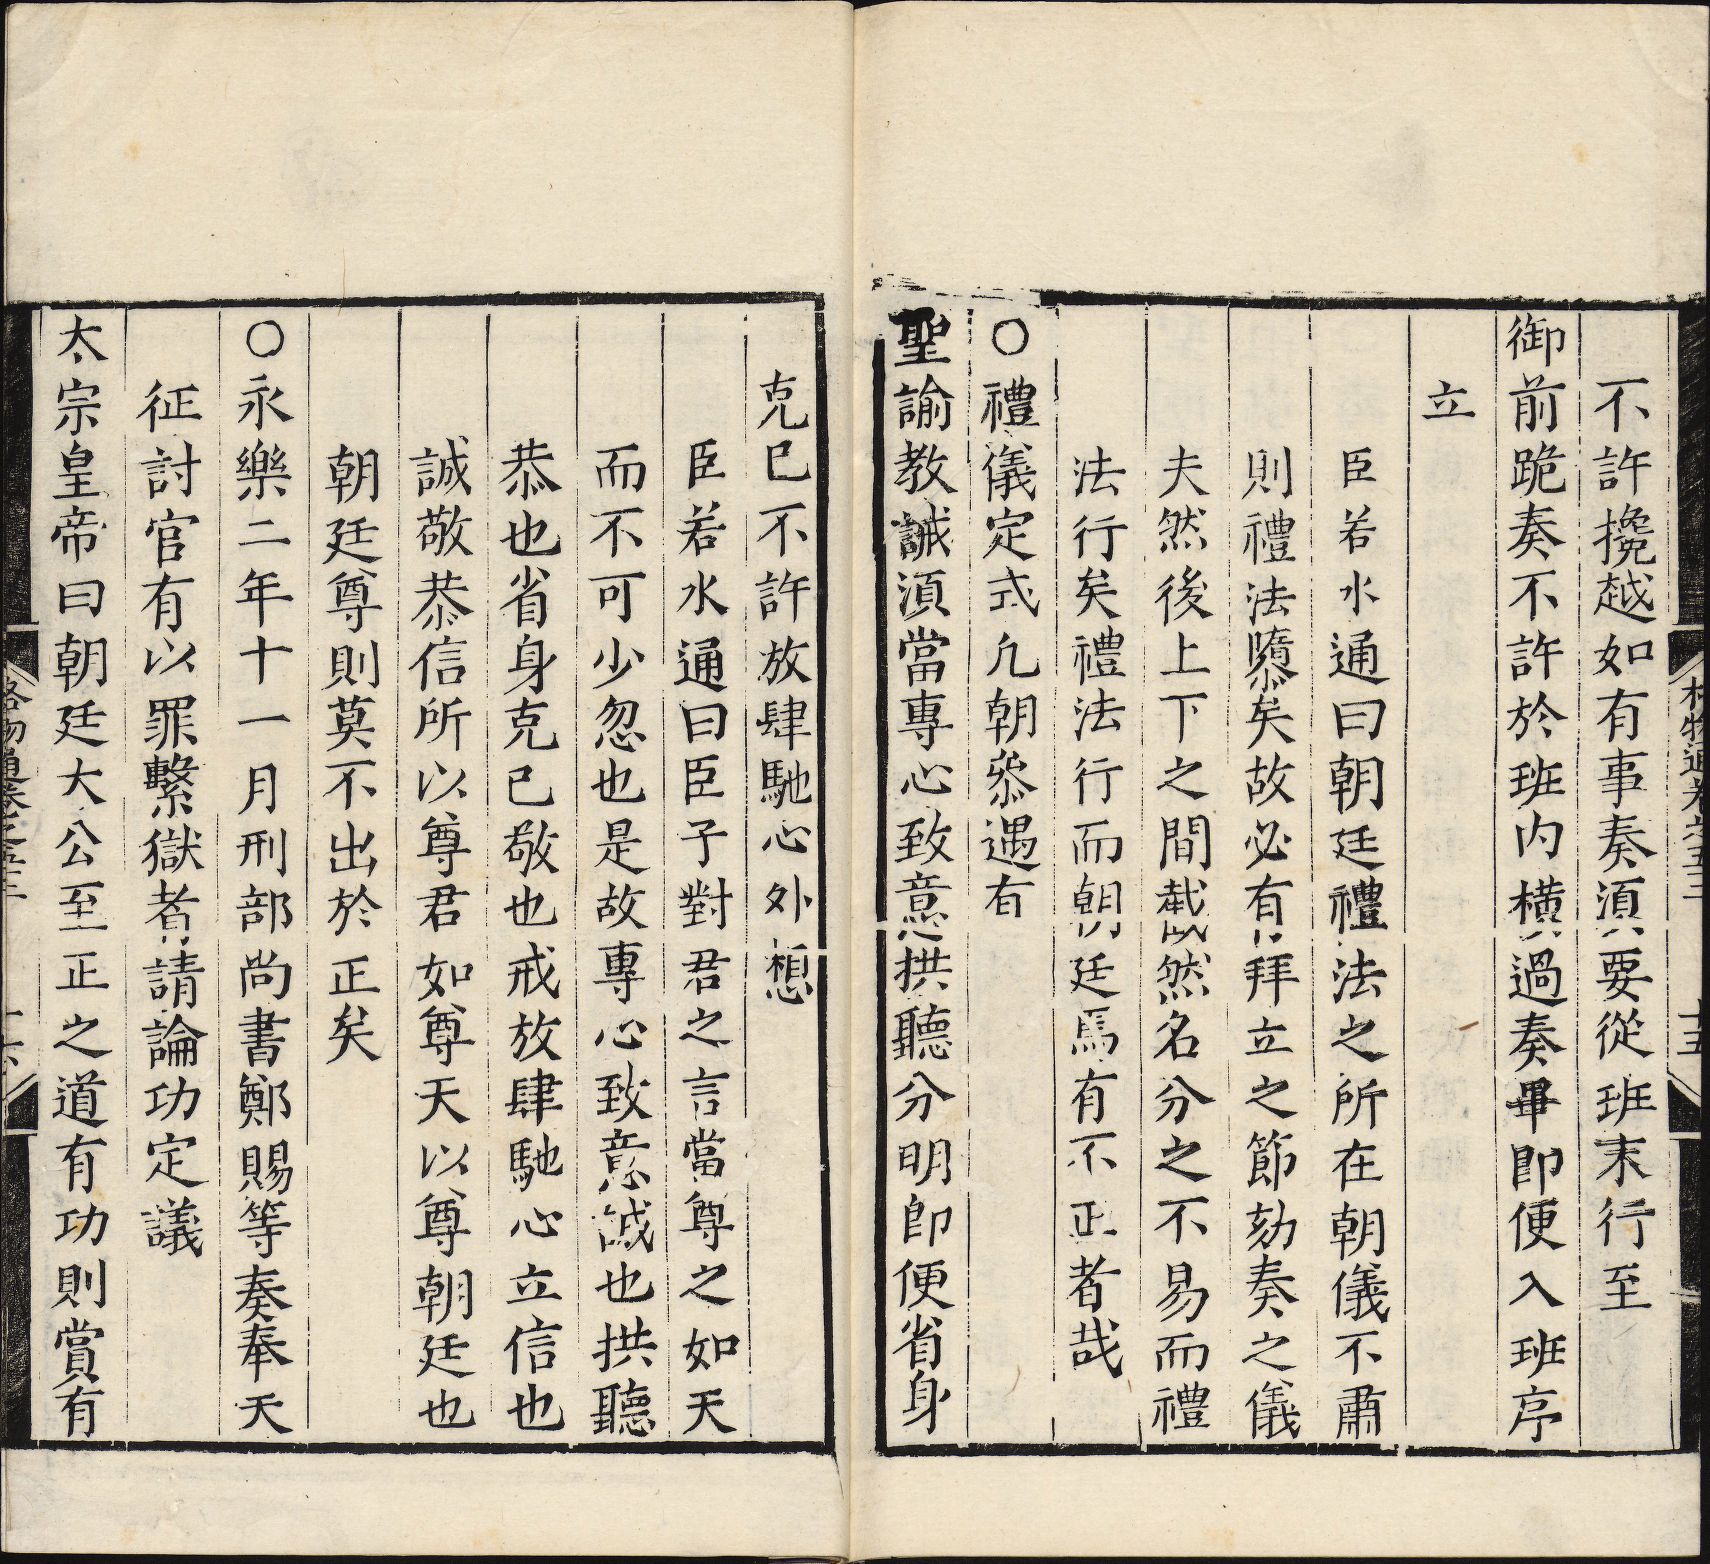 格物通卷之五三
十五
不許攙越如有事奏湏要從班末行至
御前跪奏不許於班内橫過奏畢卽便入班序
立
臣若水通曰朝廷禮法之所在朝儀不肅
則禮法隳矣故必有拜立之節劾奏之儀
夫然後上下之間截然名分之不易而禮
法行矣禮法行而朝廷焉有不正者哉
○禮儀定式凢朝叅遇有
聖諭教誡湏當專心致意拱聽分明卽便省身
克巳不許放肆馳心外想
臣若水通曰臣子對君之言當尊之如天
而不可少忽也是故專心致意誠也拱聽
恭也省身克己敬也戒放肆馳心立信也
誠敬恭信所以尊君如尊天以尊朝廷也
朝廷尊則莫不出於正矣
○永樂二年十一月刑部尚書鄭賜等奏奉天
征討官有以罪繫獄者請論功定議
太宗皇帝曰朝廷大公至正之道有功則賞有
格物通卷之五三
十六